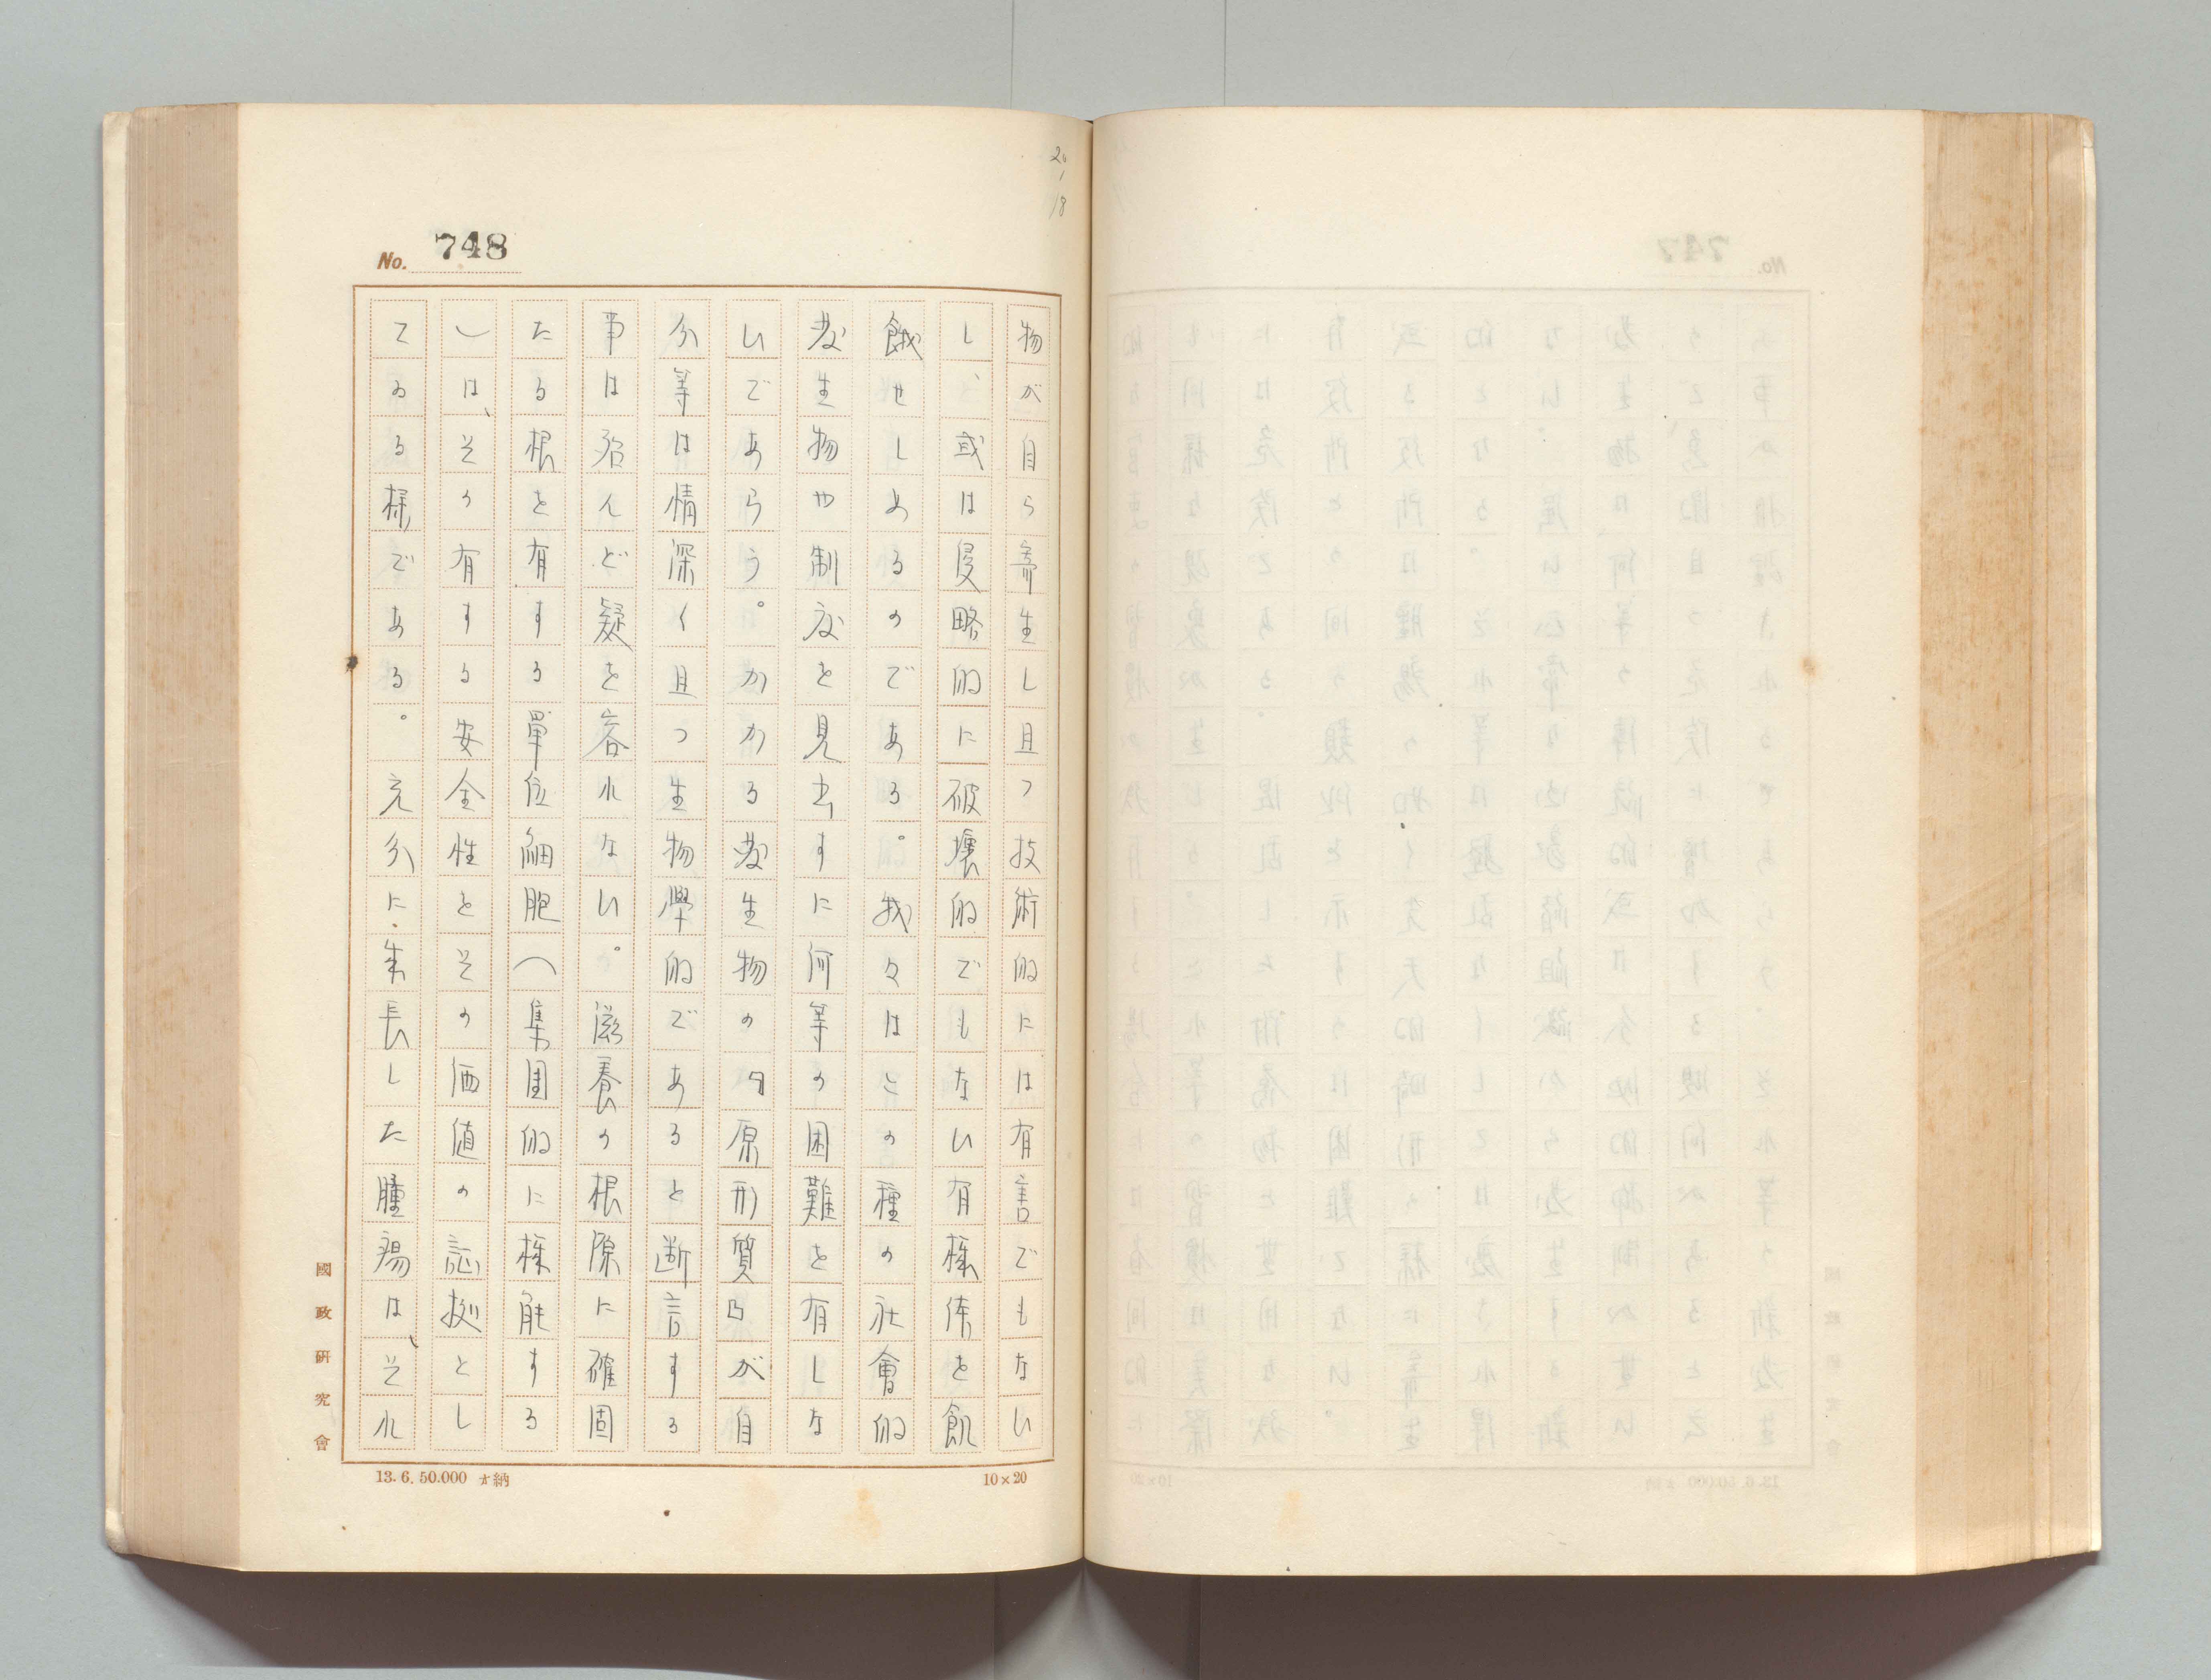 20/18
No. 748
物が自ら寄生し且つ技術的には有害でもない
し、或は侵略的に破壊的でもない有様体を飢
餓せしめるのである。我々はこの種の社會的
寄生物や制度を見出すに何等の困難を有しな
いであらう。かかる寄生物の「原形質」が自
分等は情深く且つ生物學的であると断言する
事は殆んど疑を容れない。滋養の根源に確固
たる根を有する單位細胞(集團的に様能する
)は、その有する安全性とその価値の証拠とし
てゐる様である。充分に生長した腫瘍は、それ
國政研究會
13.6.50.000 才納
10×20